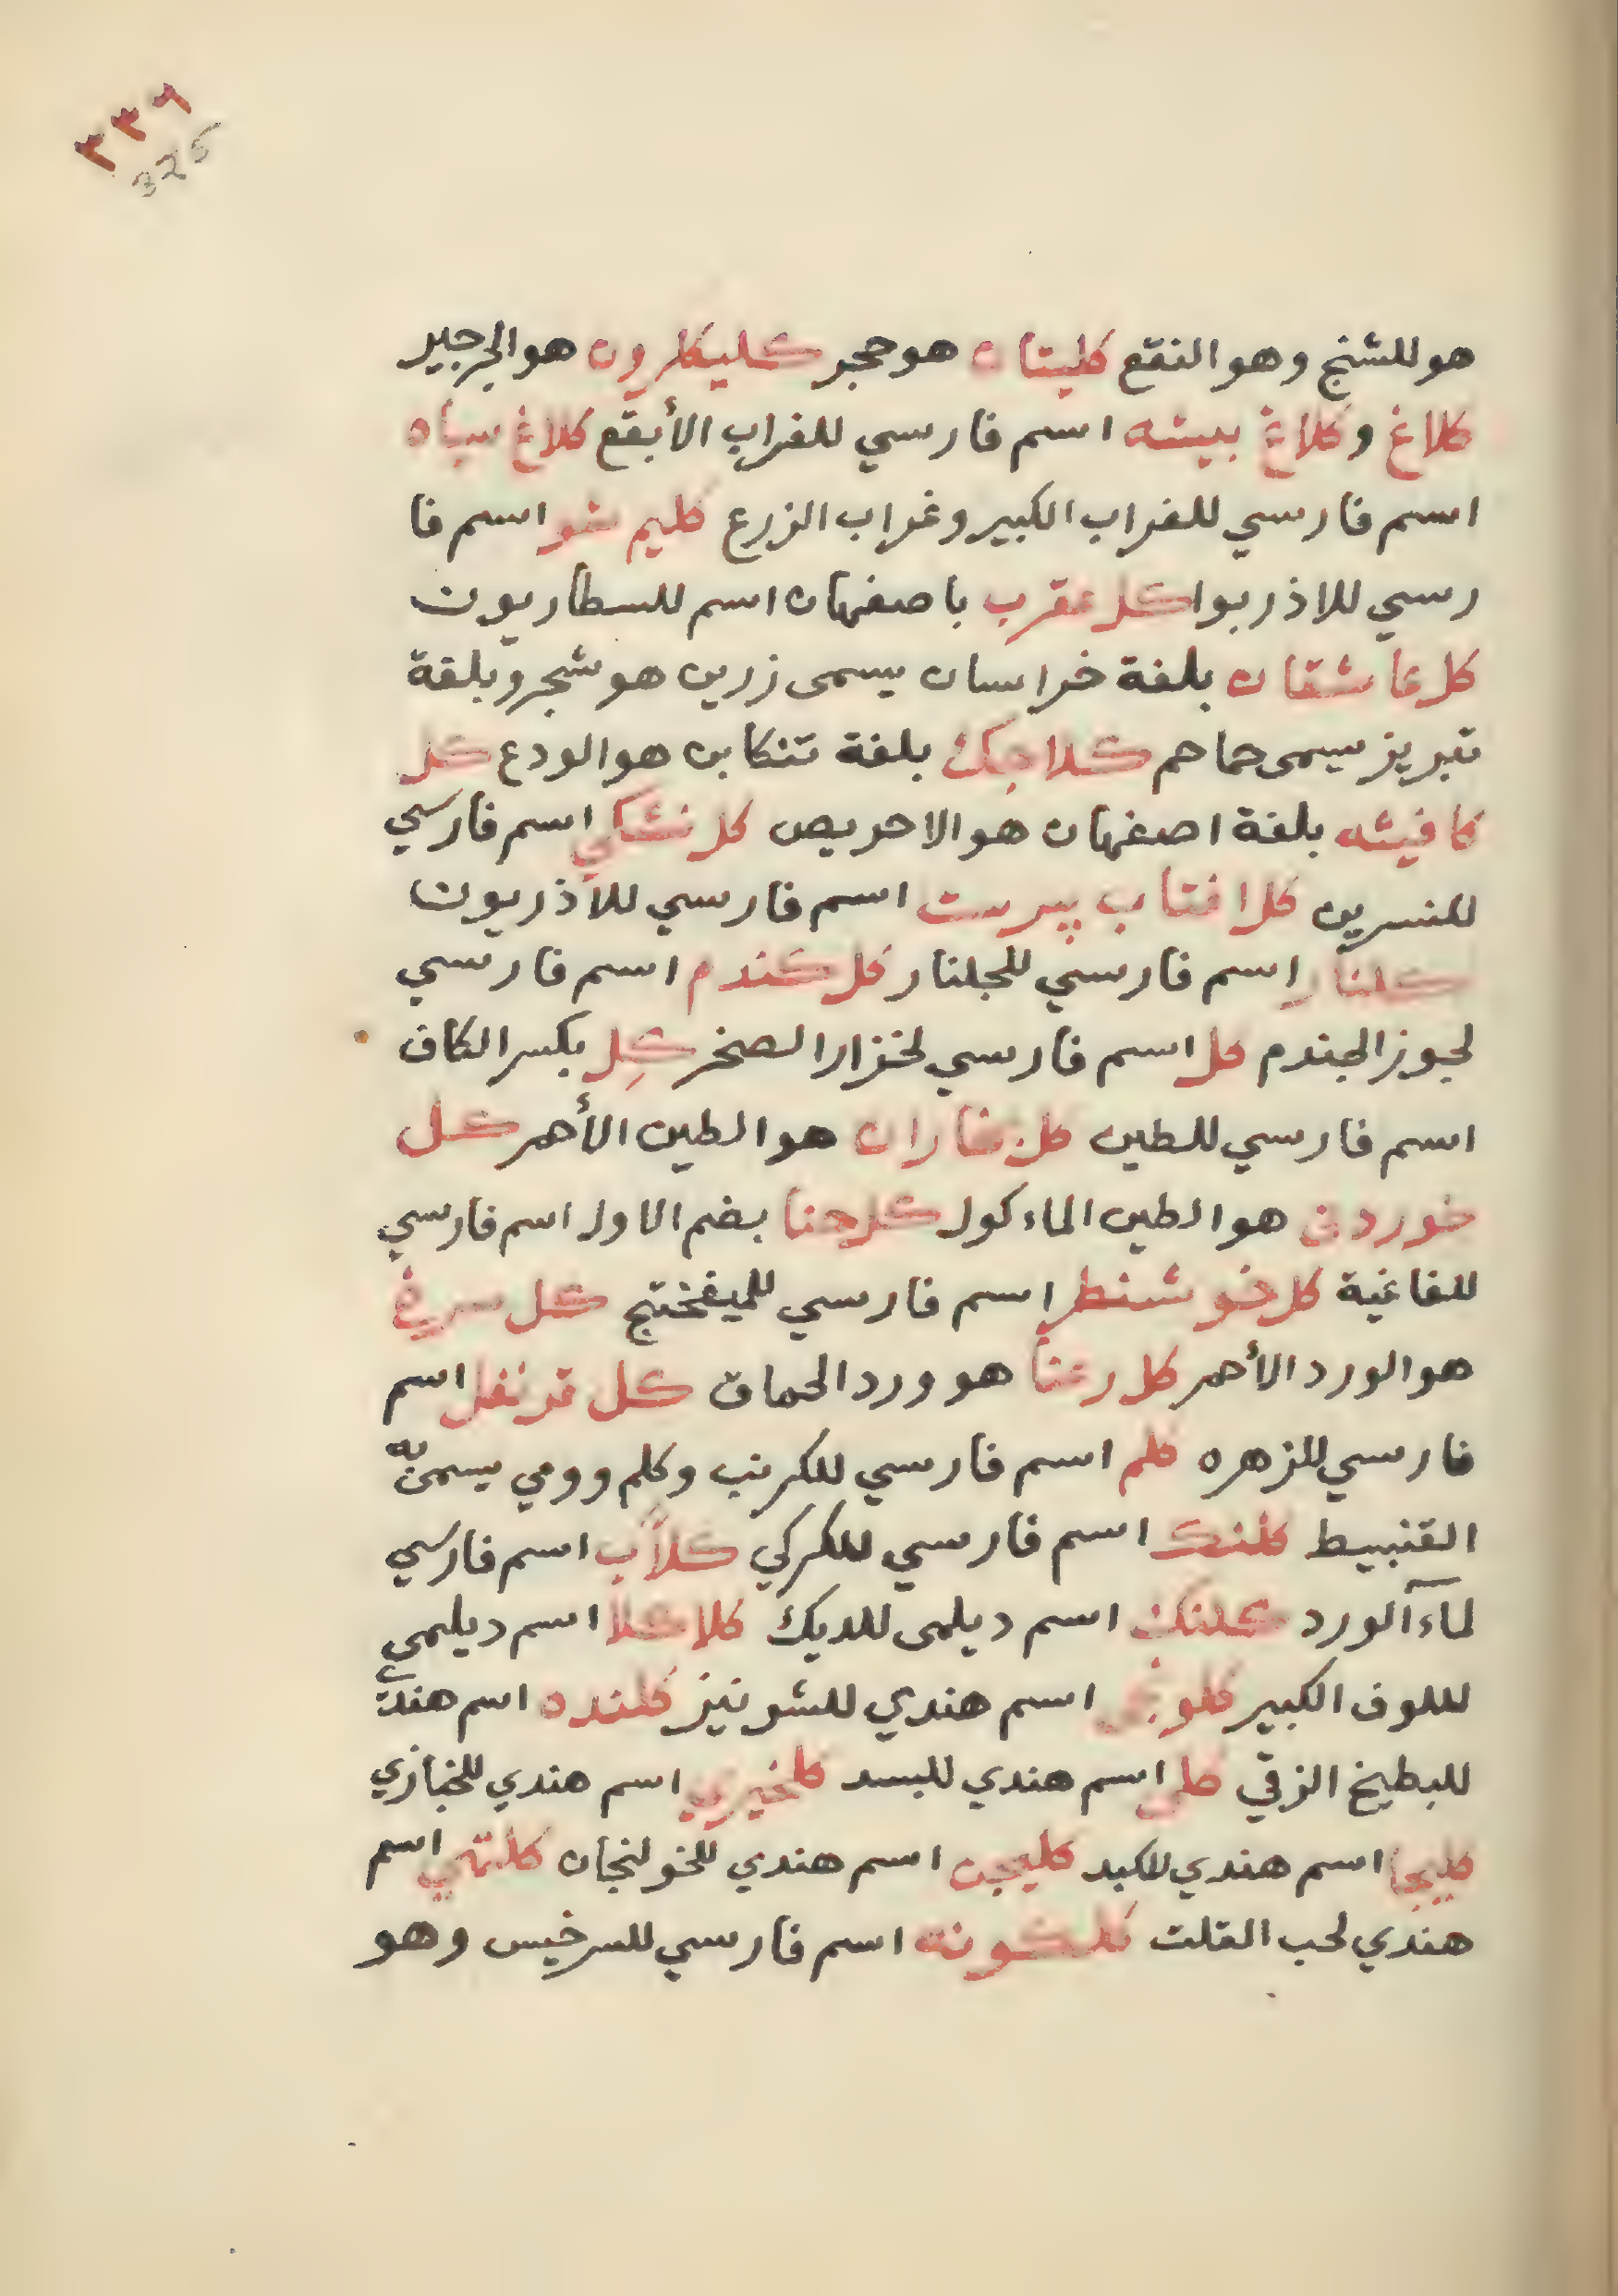 ٣٣٦
325
هو للشنج وهو النقع كليتان هو حجر كليكارون هو الجرجير
كلاغ وكلاغ بيشه اسم فارسي للغراب الأبقع كلاغ سياه
اسم فارسي للغراب الكبير وغراب الزرع كليم شو اسم فا
رسي للاذربوا كل عقرب باصفهان اسم للسطاريون
كل عاشقان بلغة خراسان يسمى زرين هو شجر وبلغة
تبريز سيمى حماحم كلاجك بلغة تنكابن هو الودع كل
كافيشه بلغة اصفهان هو الاحريص كل نشكي اسم فارسي
للنسرين كل افتاب پرست اسم فارسي للأذريون
كلنار اسم فارسي للجلنار كل كندم اسم فارسي
لجوز الجندم كل اسم فارسي لخزار الصخر كِل بكسر الكاف
اسم فارسي للطين كل غاران هو الطين الأحمر كل
خوردنى هو الطين الماءكول كل حنا بضم الاول اسم فارسي
للفاغية كل خوشنطر اسم فارسي للميفختج كل سرخ
هو الورد الأحمر كل رعنا هو ورد الحماق كل قرنفل اسم
فارسي للزهره كلم اسم فارسي للكرنب وكلم وومي يسمى به
القنبيط كلنك اسم فارسي للكركي كلاًب اسم فارسي
لماء الورد كلنك اسم ديلمى للديك كلاكلا اسم ديلمى
للوف الكبير كلونجى اسم هندي للشونيز كلنده اسم هندي
للبطيخ الزقي كلى اسم هندي للبسد كلخيري اسم هندي للخبازي
كليجا اسم هندي للكبد كليجن اسم هندي للخولنجان كلتهي اسم
هندي لحب القلت كلكونه اسم فارسي للسرخيس وهو